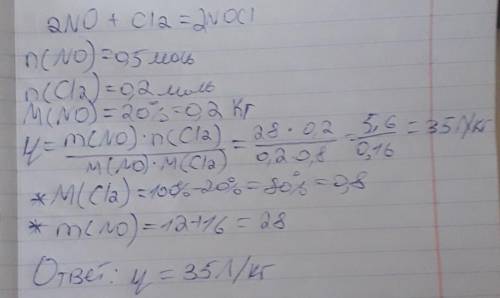 2NO + Cl2 = 2NOCl
n(NO) = 0,5 моль
n(Cl2) = 0,2 моль
M(NO) = 20% = 0,2 кг
y = m(NO) · n(Cl2) / M(NO) · M(Cl2) = 28 · 0,2 / 0,2 · 0,8 = 5,6 / 0,16 = 35 л/кг
* M(Cl2) = 100% - 20% = 80% = 0,8
* m(NO) = 12 + 16 = 28
Ответ: y = 35 л/кг